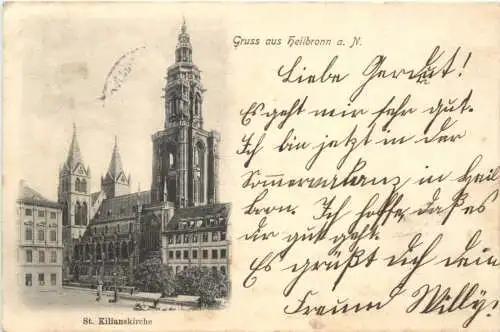 Gruss aus Heilbronn a. N.
Liebe Gerdut!
Es geht mir sehr gut.
Ich bin jetzt in der
Sommervakanz in Heil
bronn. Ich hoffe, daß es
dir gut geht.
Es grüßt dich dein
Freund Willy!
St. Kilianskirche